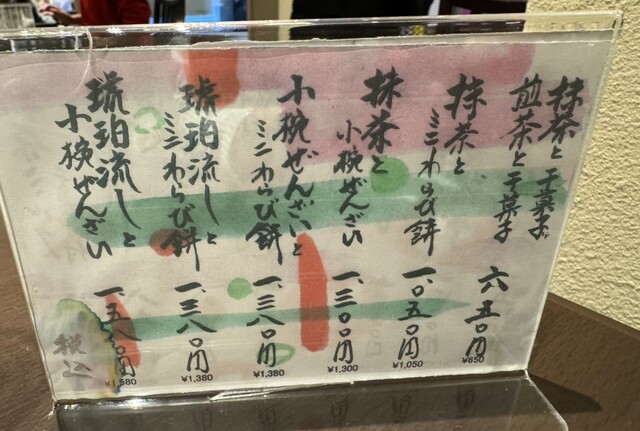 抹茶と干菓子
煎茶と干菓子
六五〇円
¥650
抹茶と
ミニわらび餅
一、〇五〇円
¥1,050
抹茶と
小椀ぜんざい
一、三〇〇円
¥1,300
小椀ぜんざいと
ミニわらび餅
一、三八〇円
¥1,380
琥珀流しと
ミニわらび餅
一、三八〇円
¥1,380
琥珀流しと
小椀ぜんざい
一、五八〇円
¥1,580
税込